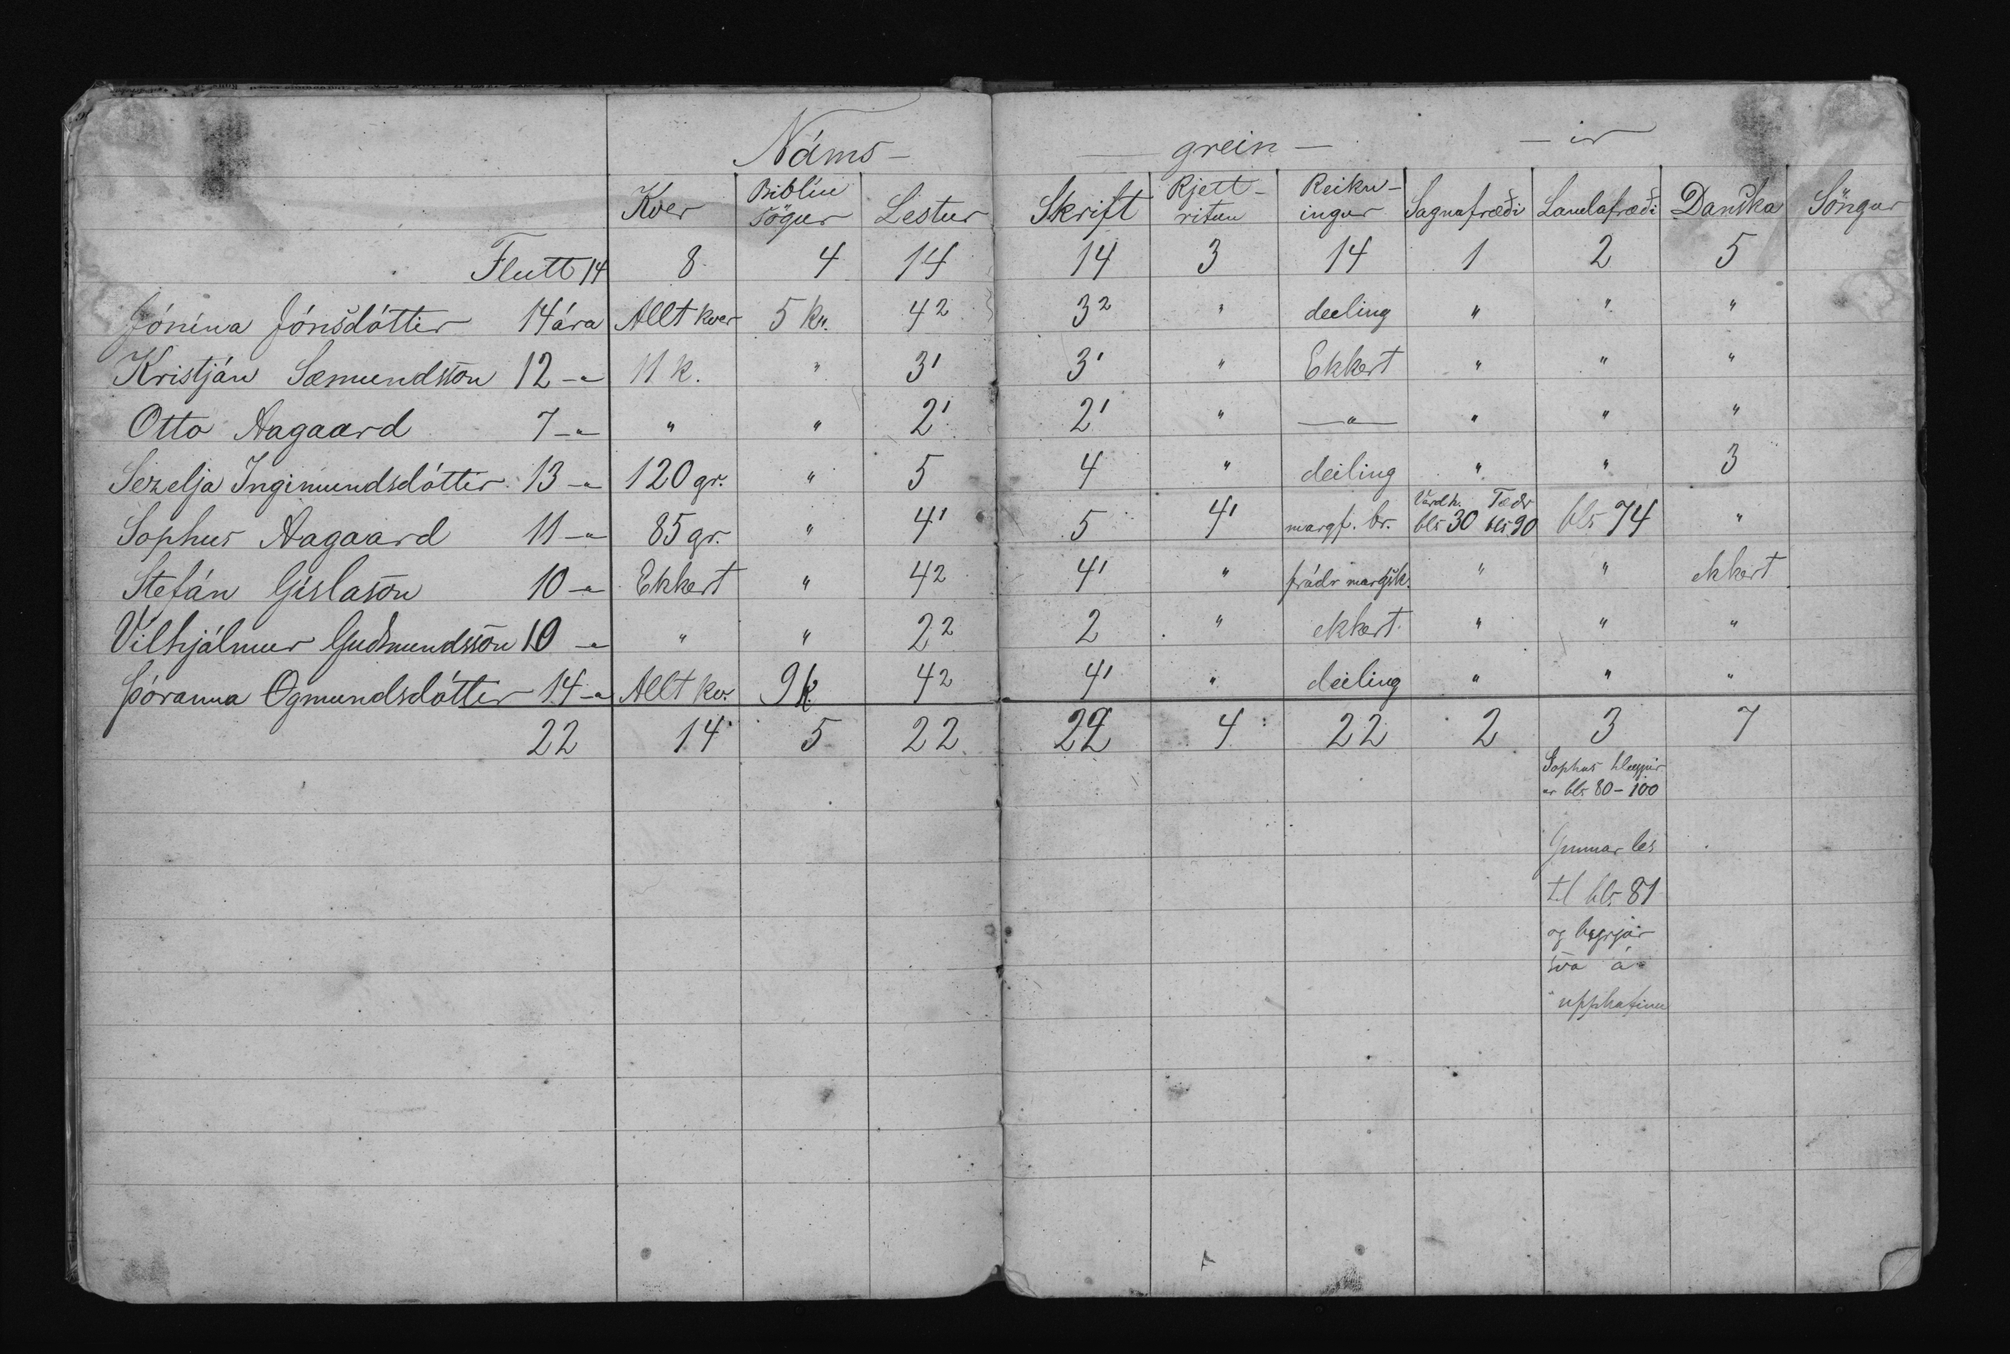 Náms- grein- -ir
Kver Biblíu sögur Lestur Skrift Rjett-ritun Reikn-ingur Sagnafræði Landafræði Danska Söngur
Flutt 14 8 4 14 14 3 14 1 2 5
Jónína Jónsdóttir 14 ára Allt kver 5 k. 4² 3² " deiling " " "
Kristján Sæmundsson 12 -"- 11 k. " 3¹ 3¹ " Ekkert " " "
Otto Aagaard 7 -"- " " 2¹ 2¹ " -"- " " "
Sezelja Ingimundsdóttir 13 -"- 120 gr. " 5 4 " deiling " " 3
Sophus Aagaard 11 -"- 85 gr. " 4¹ 5 4¹ margf. br. bls 30 bls 90 bls 74 "
Stefán Gíslason 10 -"- Ekkert " 4² 4¹ " frádr " " ekkert
Vilhjálmur Guðmundsson 10 -"- " " 2² 2 " ekkert " " "
Þóranna Ogmundsdóttir 14 -"- Allt kv. 9 k. 4² 4¹ " deiling " " "
22 14 5 22 22 4 22 2 3 7
Sophus hleypur
er bls 80-100
Gunnar les
til bls 81
og byrjar
svo á
upphafinu